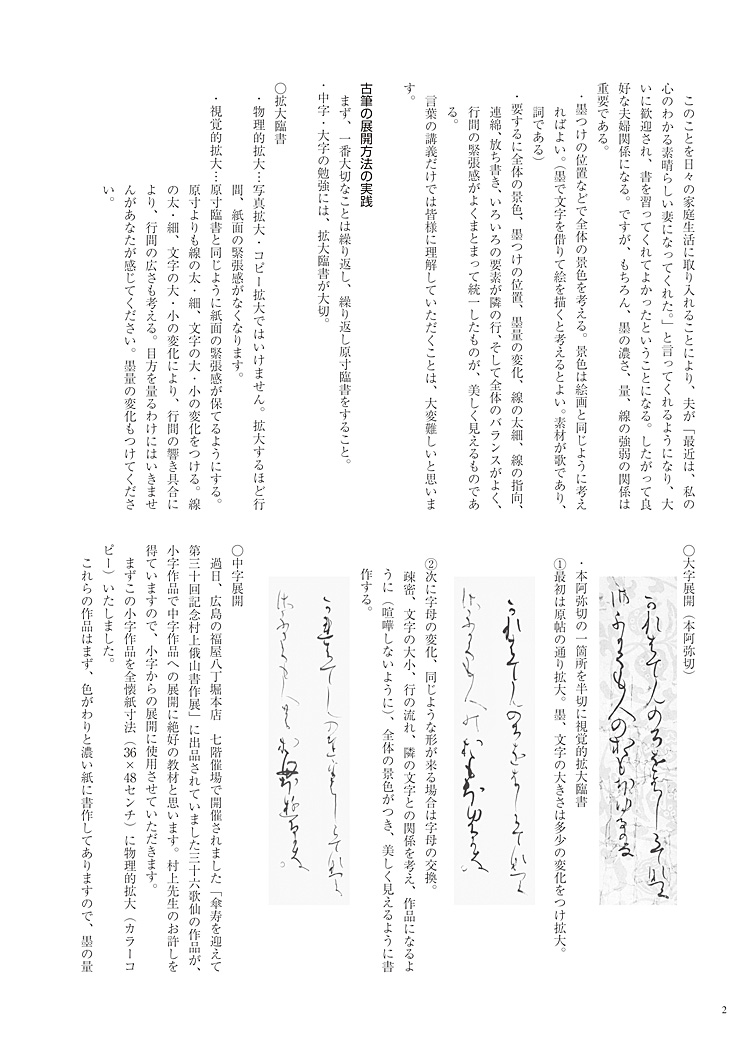 このことを日々の家庭生活に取り入れることにより、夫が「最近は、私の
心のわかる素晴らしい妻になってくれた。」と言ってくれるようになり、大
いに歓迎され、書を習ってくれてよかったということになる。したがって良
好な夫婦関係になる。ですが、もちろん、墨の濃さ、量、線の強弱の関係は
重要である。
・墨つけの位置などで全体の景色を考える。景色は絵画と同じように考え
ればよい。（墨で文字を借りて絵を描くと考えるとよい。素材が歌であり、
詞である）
・要するに全体の景色、墨つけの位置、墨量の変化、線の太細、線の指向、
連綿、放ち書き、いろいろの要素が隣の行、そして全体のバランスがよく、
行間の緊張感がよくまとまって統一したものが、美しく見えるものであ
る。
言葉の講義だけでは皆様に理解していただくことは、大変難しいと思いま
す。
古筆の展開方法の実践
まず、一番大切なことは繰り返し、繰り返し原寸臨書をすること。
・中字・大字の勉強には、拡大臨書が大切。
〇拡大臨書
・物理的拡大…写真拡大・コピー拡大ではいけません。拡大するほど行
間、紙面の緊張感がなくなります。
・視覚的拡大…原寸臨書と同じように紙面の緊張感が保てるようにする。
原寸よりも線の太・細、文字の大・小の変化をつける。線
の太・細、文字の大・小の変化により、行間の響き具合に
より、行間の広さも考える。目方を量るわけにはいきませ
んがあなたが感じてください。墨量の変化もつけてくださ
い。
〇大字展開（本阿弥切）
・本阿弥切の一箇所を半切に視覚的拡大臨書
①最初は原帖の通り拡大。墨、文字の大きさは多少の変化をつけ拡大。
②次に字母の変化、同じような形が来る場合は字母の交換。
疎密、文字の大小、行の流れ、隣の文字との関係を考え、作品になるよ
うに（喧嘩しないように）、全体の景色がつき、美しく見えるように書
作する。
〇中字展開
過日、広島の福屋八丁堀本店　七階催場で開催されました「傘寿を迎えて
第三十回記念村上俄山書作展」に出品されていました三十六歌仙の作品が、
小字作品で中字作品への展開に絶好の教材と思います。村上先生のお許しを
得ていますので、小字からの展開に使用させていただきます。
まずこの小字作品を全懐紙寸法（36×48センチ）に物理的拡大（カラーコ
ピー）いたしました。
これらの作品はまず、色がわりと濃い紙に書作してありますので、墨の量
2